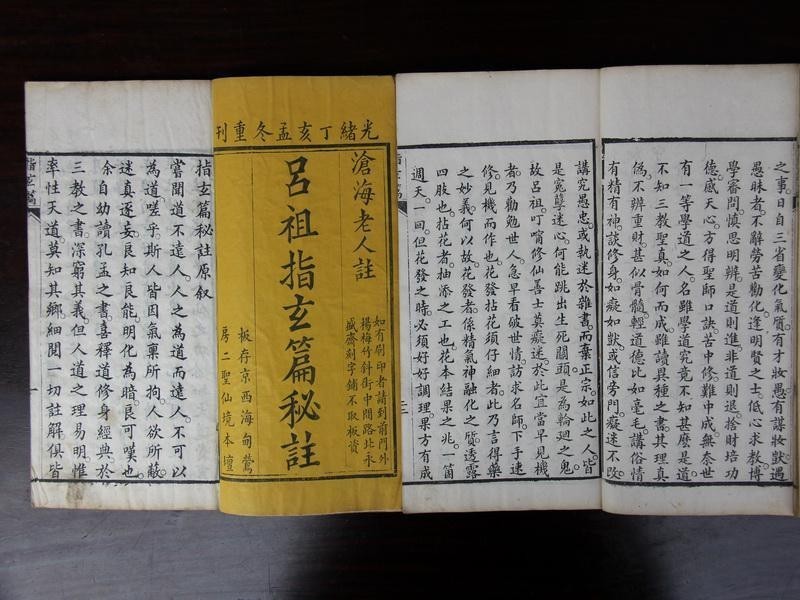 之事。日自三省變化氣質。有才妝愚有謀妝獃遇
愚昧者。不辭勞苦勸化。逢明賢之士。低心求教。博
學審問慎思明辨。是道則進非道則退。捨財培功
德。感天心。方得聖師口訣。苦中修。難中成。無奈世
有一等學道之人。名雖學道究竟不知甚麼是道
不知三教聖真。如何而成。雖讀異種之書。其理真
偽。不辨重財。甚似骨髓。輕道德比如毫毛。講俗情
有精有神。談修身。如癡如獃。或信旁門。癡迷不改
講究愚忠。或執迷於雜書。而棄正宗。如此之人。皆
是冤孽迷心。何能跳出生死關頭。是為輪廻之鬼。
故呂祖叮嚀修仙善士莫癡迷於此宜當早見機
者。乃勸勉世人。急早看破世情。訪求名師。下手速
修。見機而作也。花發拈花須仔細者。此乃言得藥
之妙義。何以故。花發者。係精氣神融化之質。透露
四肢也。拈花者。抽添之工也。花本結果之兆。一箇
週天。一回。但花發之時。必須好好調理果方有成
光緒丁亥孟冬重刊
滄海老人註
如有刷印者請到前門外
楊梅竹斜街中間路北永
盛齋刻字鋪不取板資
呂祖指玄篇秘註
板存京西海甸鶯
房二聖仙境本壇
指玄篇秘註原叙
嘗聞道不遠人。人之為道而遠人。不可以
為道。嗟乎。斯人皆因氣稟所拘。人欲所蔽。
迷真逐妄。良知良能。明化為暗。良可嘆也。
余自幼讀孔孟之書。喜釋道修身經典。於
三教之書。深窮其義。但人道之理易明。惟
率性天道。莫知其鄉。細閱一切註解。俱皆
指玄篇
一